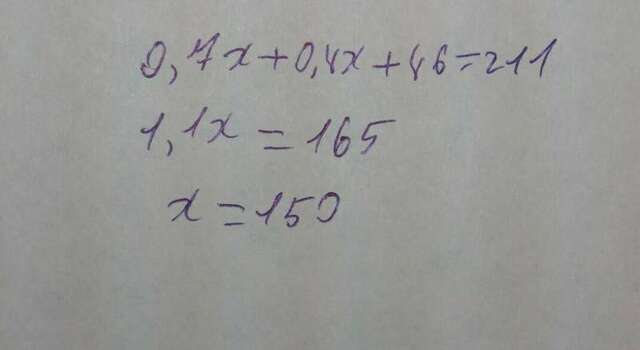 0,7x+0,4x+46=211
1,1x=165
x=150